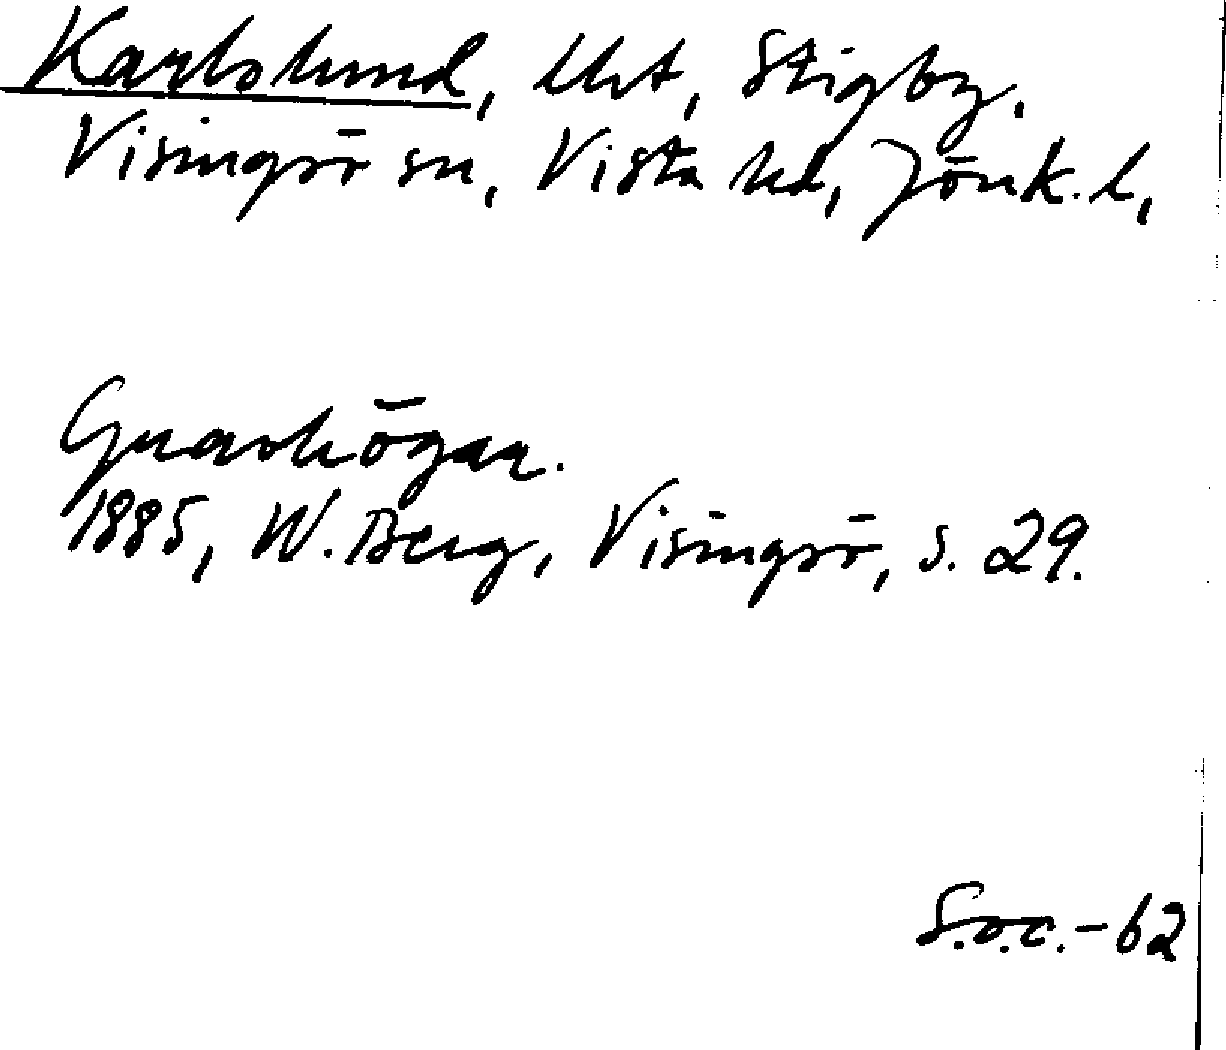 Karlslund, lht, Stigby.
Visingsö sn, Vista hd, Jönk. l,
Gravhögar.
1885, W. Berg, Visingsö, s. 29.
S.o.c. - 62